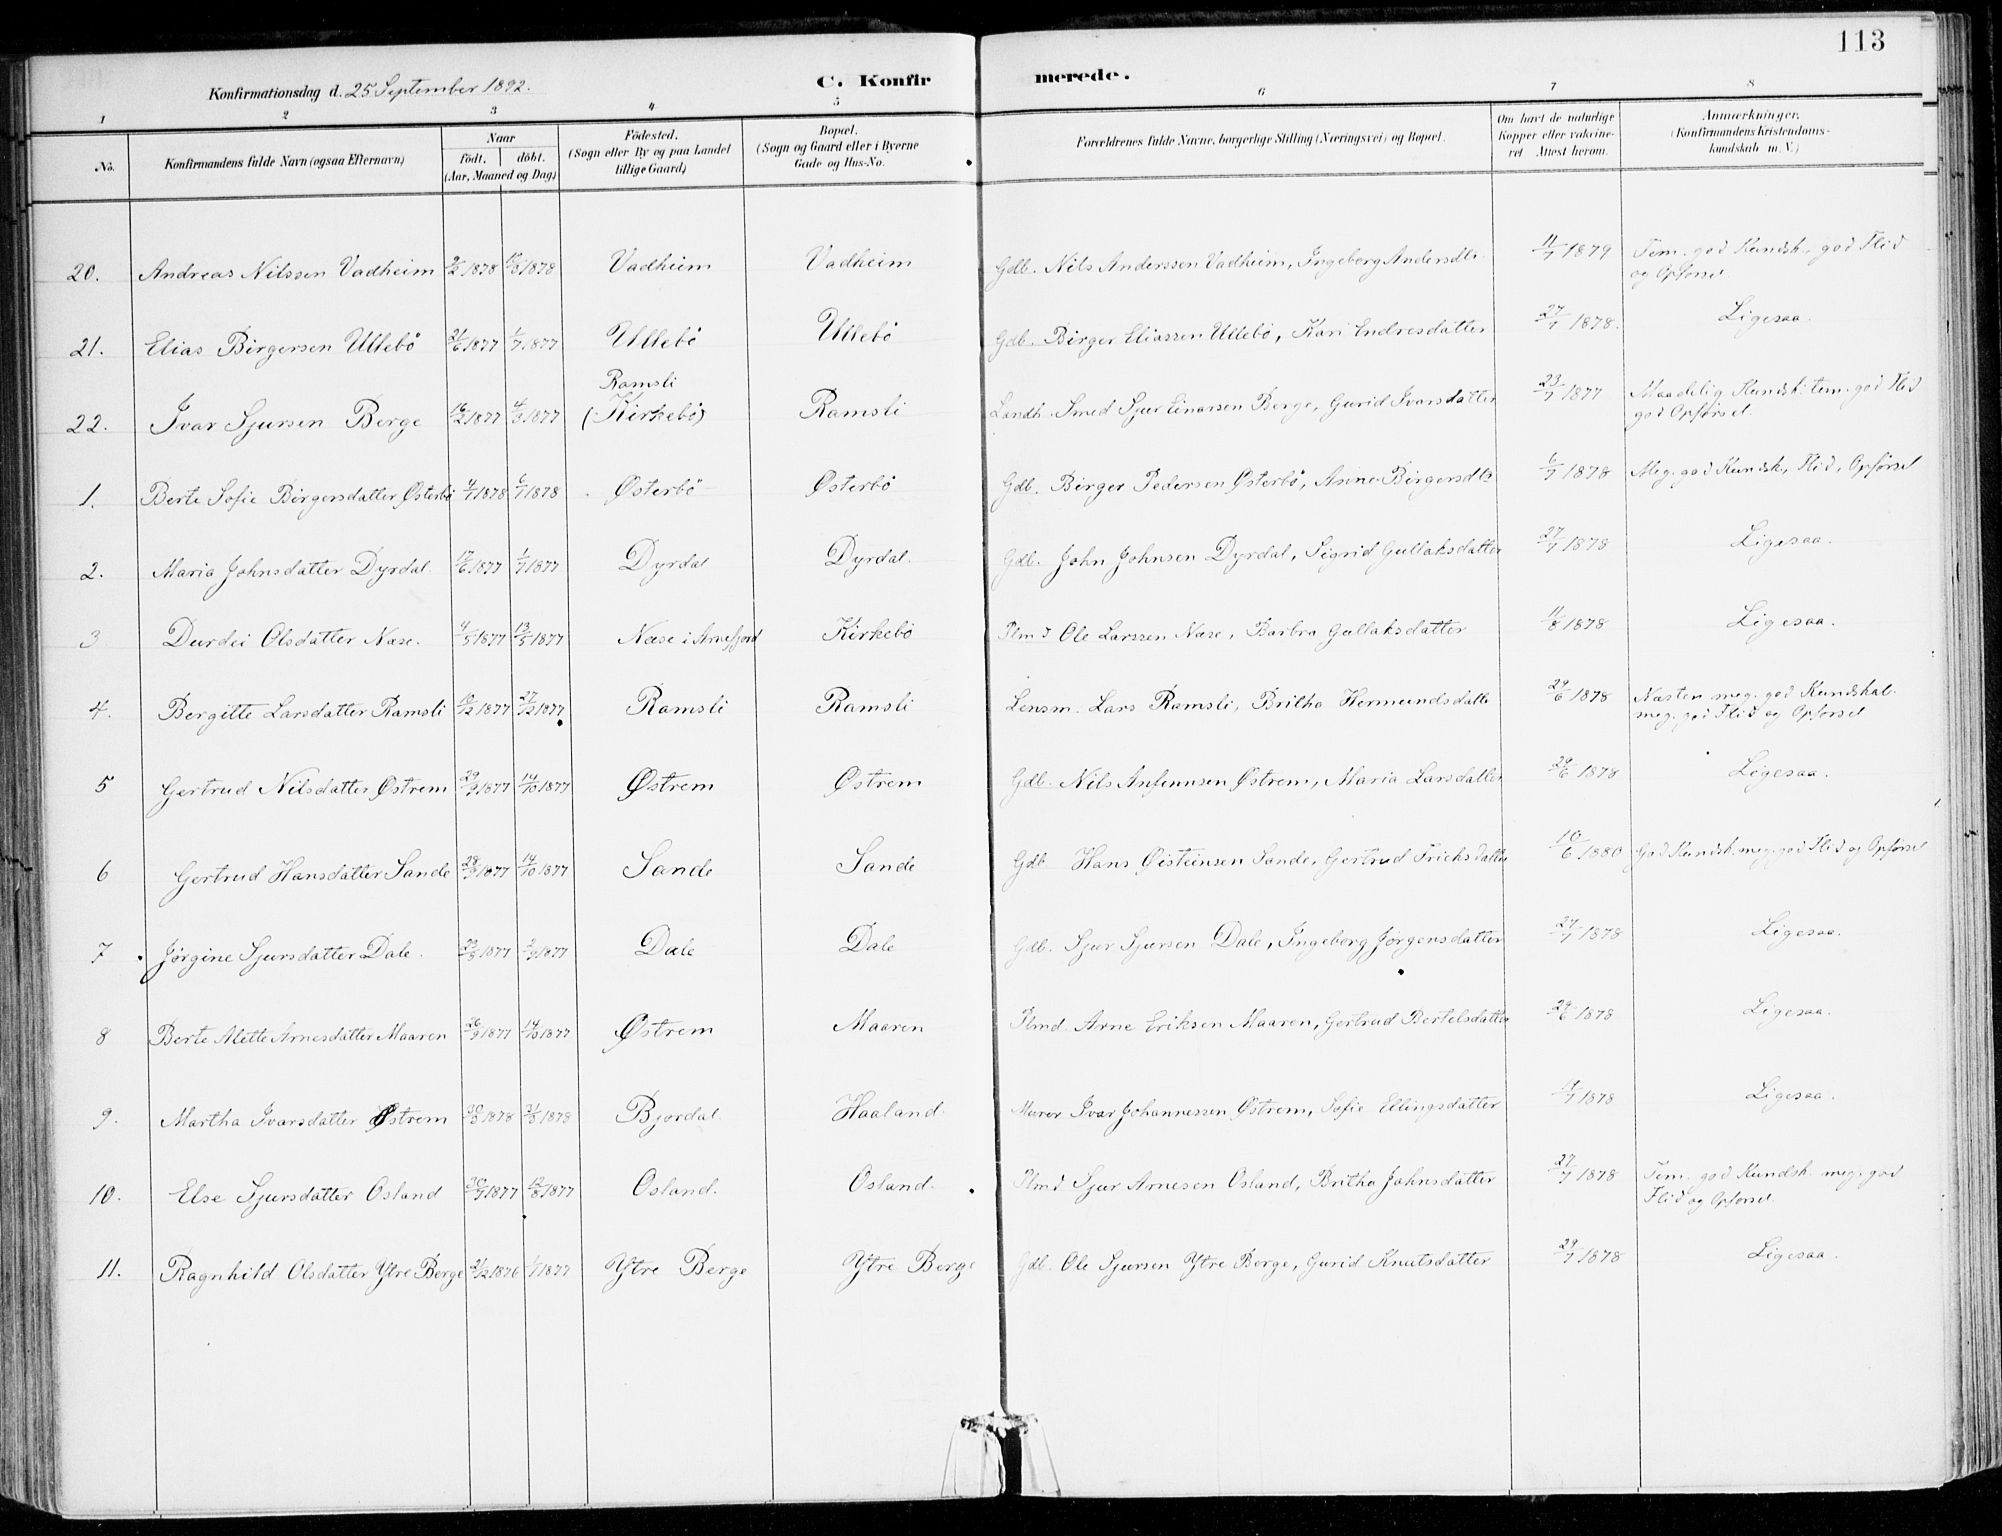 113
Konfirmationsdag d. 25 September 1892. C. Konfirmerede.
1 2 3 4 5 6 7 8
No. Konfirmandens fulde Navn (ogsaa Efternavn) Naar födt. döbt. (Aar, Maaned og Dag) Födested. (Sogn eller By og paa Landet tillige Gaard) Bopæl. (Sogn og Gaard eller i Byerne Gade og Hus-No. Forældrenes fulde Navne, borgerlige Stilling (Næringsvei) og Bopæl. Om havt de naturlige Kopper eller vakcineret Attest herom. Anmærkninger. (Konfirmandens Kristendomskundskab m. V.)
20. Andreas Nilssen Vadheim 1878 1878 Vadheim Vadheim Gdb. Nils Anderssen Vadheim, Ingeborg Andersdtr. 11/7 1879 Tem. god Kundsk., god Flid
og Opförsel
21. Elias Birgersen Ullebö 21/6 1877 1/7 1877 Ullebö Ullebö Gdb. Birger Eliassen Ullebö, Kari Endresdatter 27/7 1878. Ligesaa.
22. Ivar Sjursen Berge 16/2 1877 4/3 1877 Ramsli (Kirkebö) Ramsli Landh. Smed Sjur Einarsen Berge, Gurid Ivarsdatter 23/7 1877 Maadelig Kundsk. tem. god Flid
god Opförsel.
1. Berte Sofie Birgersdatter Østerbö 4/7 1878 6/7 1878 Østerbö Østerbö Gdb. Birger Pedersen Østerbö, Anne Birgersdtr 1878 Meg. god Kundsk, Flid, Opförsel
2. Maria Johnsdatter Dyrdal. 17/6 1877 1/7 1877 Dyrdal Dyrdal. Gdb. John Johnsen Dyrdal, Sigrid Gullaksdatter 27/7 1878 Ligesaa.
3 Durdei Olsdatter Næse. 4/5 1877 13/5 1877 Næse i Arnefjord Kirkebö Plmd Ole Larssen Næse, Barbra Gullaksdatter 11/8 1878 Ligesaa.
4. Bergitte Larsdatter Ramsli 10/12 1877 27/12 1877 Ramsli Ramsli Lensm. Lars Ramsli, Britha Hermundsdatter 29/6 1878 Næsten meg. god Kundskab.
meg. god Flid og Opförsel
5 Gertrud Nilsdatter Østrem 29/9 1877 14/10 1877 Østrem Østrem Gdb. Nils Anfinnsen Østrem, Maria Larsdatter 29/6 1878 Ligesaa.
6 Gertrud Hansdatter Sande 28/9 1877 14/10 1877 Sande Sande Gdb Hans Øisteinsen Sande, Gertrud Erichsdatter 10/6 1880 God Kundsk. meg. god Flid og Opförsel
7 Jørgine Sjursdatter Dale. 1877 2/9 1877 Dale Dale Gdb. Sjur Sjursen Dale, Ingeborg Jørgensdatter 27/7 1878 Ligesaa.
8 Berte Mette Arnesdatter Maaren 26/9 1877 14/10 1877 Østrem Maaren Plmd. Arne Eriksen Maaren, Gertrud Bertelsdatter 29/6 1878 Ligesaa.
9. Martha Ivarsdatter Østrem 1878 31/3 1878 Bjordal. Haaland. Murer Ivar Johannessen Østrem, Sofie Ellingsdatter 1878 Ligesaa.
10. Else Sjursdatter Osland 30/7 1877 12/8 1877 Osland. Osland. Plmd Sjur Arnesen Osland, Britha Johnsdatter 27/7 1878 Tem. god Kundsk. meg. god
Flid og Opförsel.
11. Ragnhild Olsdatter Ytre Berge 31/12 1876 1/1 1877 Ytre Berge Ytre Berge Gdb. Ole Sjursen Ytre Berge, Gurid Knutsdatter 29/7 1878 Ligesaa.